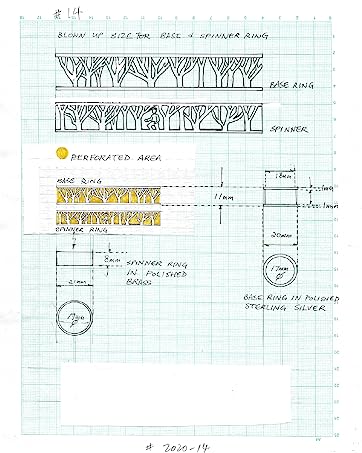 # 14
BLOWN UP SIZE FOR BASE & SPINNER RING
BASE RING
SPINNER
PERFORATED AREA
BASE RING
SPINNER RING
18mm
1mm
11mm
1mm
20mm
8mm
SPINNER RING
IN POLISHED
BRASS
21mm
17mm
17mm
BASE RING IN POLISHED
STERLING SILVER
# 2020-14